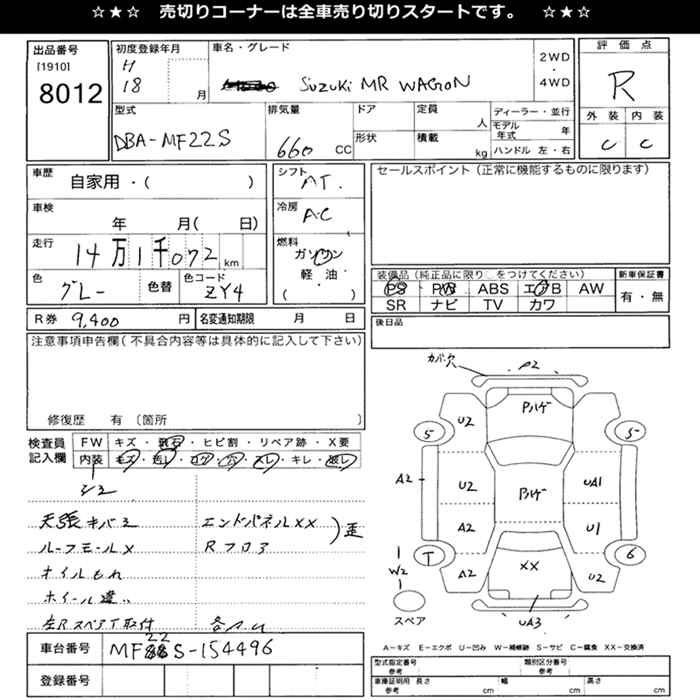 ☆★☆ 売切りコーナーは全車売り切りスタートです。 ☆★☆
出品番号
[1910]
8012
初度登録年月
H
18
月
車名・グレード
SUZUKI MR WAGON
2WD
・
4WD
評価点
R
外装 内装
C C
型式
DBA-MF22S
排気量
660 CC
ドア
形状
定員
人
積載
kg
ディーラー・並行
モデル年式 年
ハンドル 左・右
車歴
自家用・( )
車検
年 月( 日)
走行
14万1千072 km
色
グレー
色替
色コード
ZY4
シフト
AT.
冷房
A.C
燃料
ガソリン
軽・油
( )
セールスポイント（正常に機能するものに限ります）
装備品（純正品に限り○をつけてください）
PS PW ABS エアB AW
SR ナビ TV カワ
新車保証書
有・無
R券 9,400 円
名変通知期限 月 日
後日品
注意事項申告欄(不具合内容等は具体的に記入して下さい)
修復歴 有 〔箇所
検査員
記入欄
FW キズ・飛石・ヒビ割・リペア跡・X要
内装 キズ・色し・コゲ・穴・スレ・キレ・破レ
シミ
天張キバミ エンドパネルXX
ルーフモールX Rフロア
歪
オイルもれ
ホイール違い
左RスペアT取付
車台番号
MF22S-154496
登録番号
カバー欠
A2
U2
Pハゲ
5 5
A2
U2
Pハゲ
UA1
A2
U1
T
6
W2
A2
XX
U2
スペア
UA3
A-キズ E-エクボ U-凹み W-補修跡 S-サビ C-腐食 XX-交換済
型式指定番号
参考
類別区分番号
参考
車庫証明用 長さ
参考 cm
幅
cm
高さ
cm